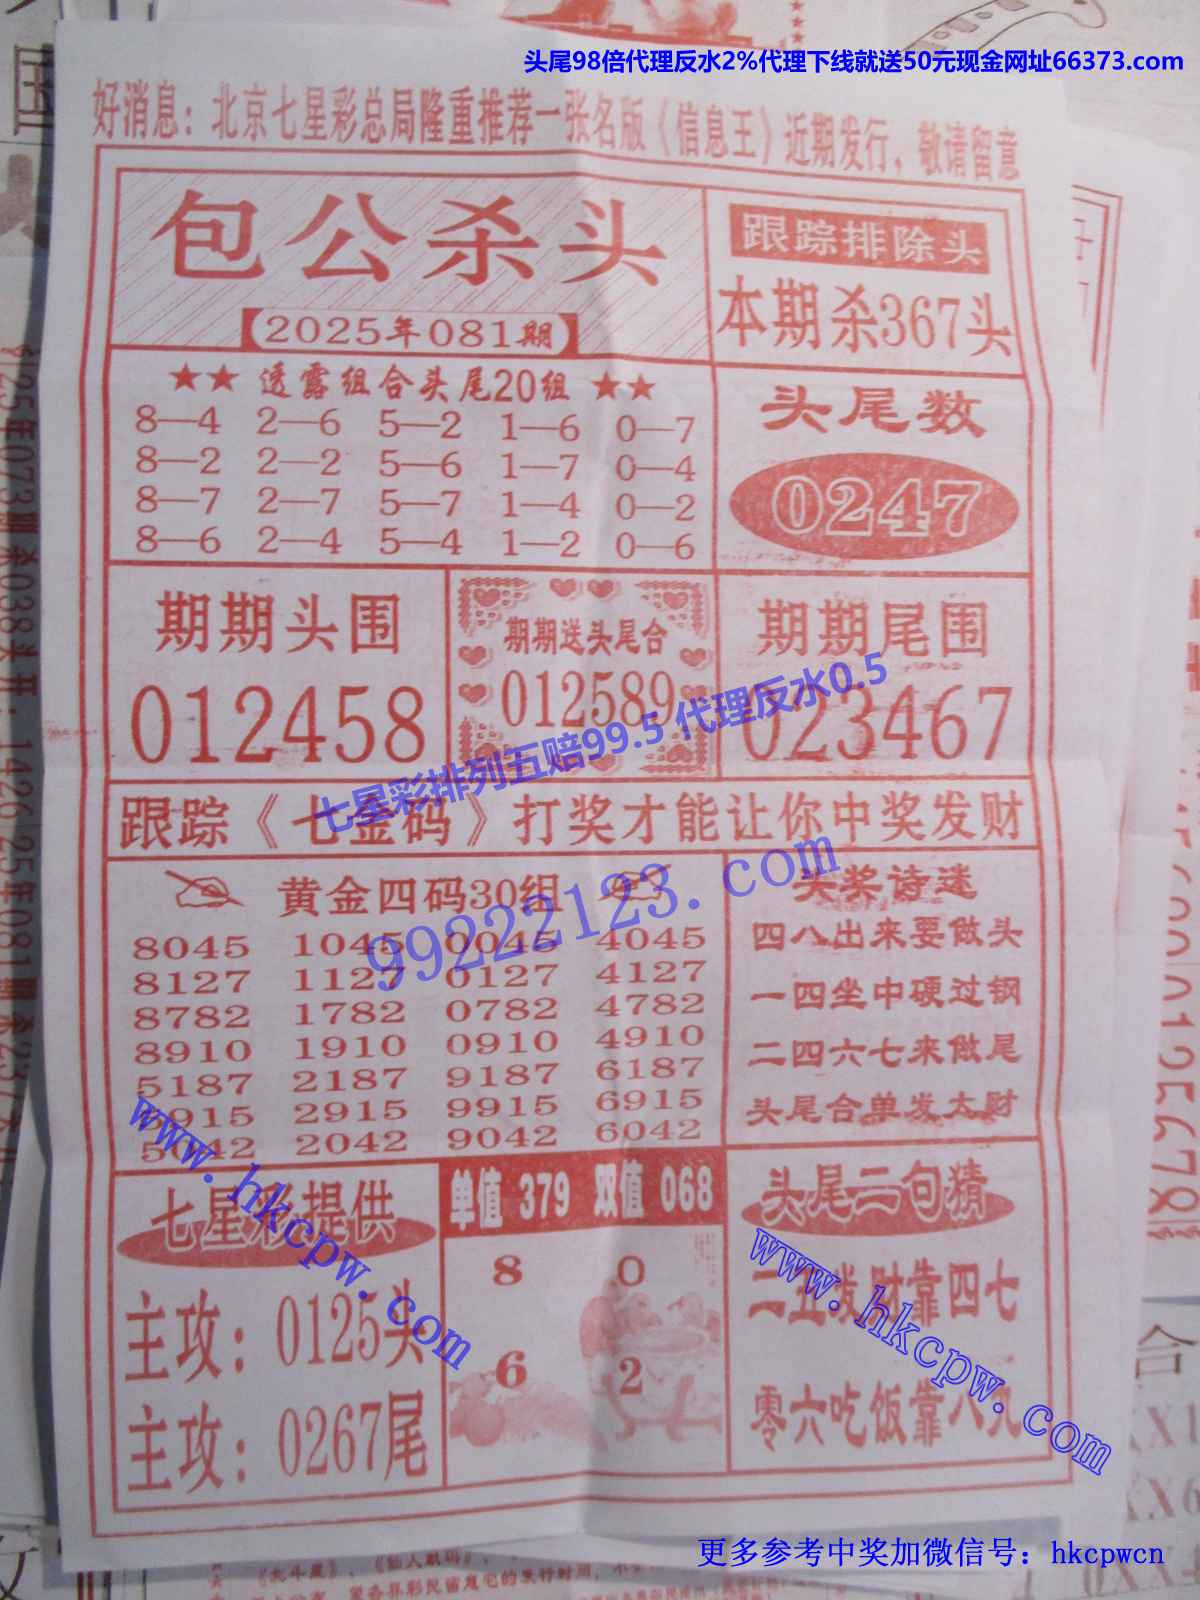 头尾98倍代理反水2%代理下线就送50元现金网址66373.com
好消息：北京七星彩总局隆重推荐一张名版《信息王》近期发行，敬请留意
包公杀头
【2025年081期】
跟踪排除头
本期杀367头
★★ 透露组合头尾20组 ★★
8—4 2—6 5—2 1—6 0—7
8—2 2—2 5—6 1—7 0—4
8—7 2—7 5—7 1—4 0—2
8—6 2—4 5—4 1—2 0—6
头尾数
0247
期期头围
012458
期期送头尾合
012589
期期尾围
023467
七星彩排列五赔99.5 代理反水0.5
跟踪《七金码》打奖才能让你中奖发财
黄金四码30组
99222123.com
8045 1045 0045 4045
8127 1127 0127 4127
8782 1782 0782 4782
8910 1910 0910 4910
5187 2187 9187 6187
5915 2915 9915 6915
5042 2042 9042 6042
头奖诗迷
四八出来要做头
一四坐中硬过钢
二四六七来做尾
头尾合单发大财
www.hkcpw.com
七星彩提供
主攻：0125头
主攻：0267尾
单值 379 双值 068
8 0
6 2
头尾二句精
二五发财靠四七
零六吃饭靠八九
www.hkcpw.com
更多参考中奖加微信号：hkcpwcn